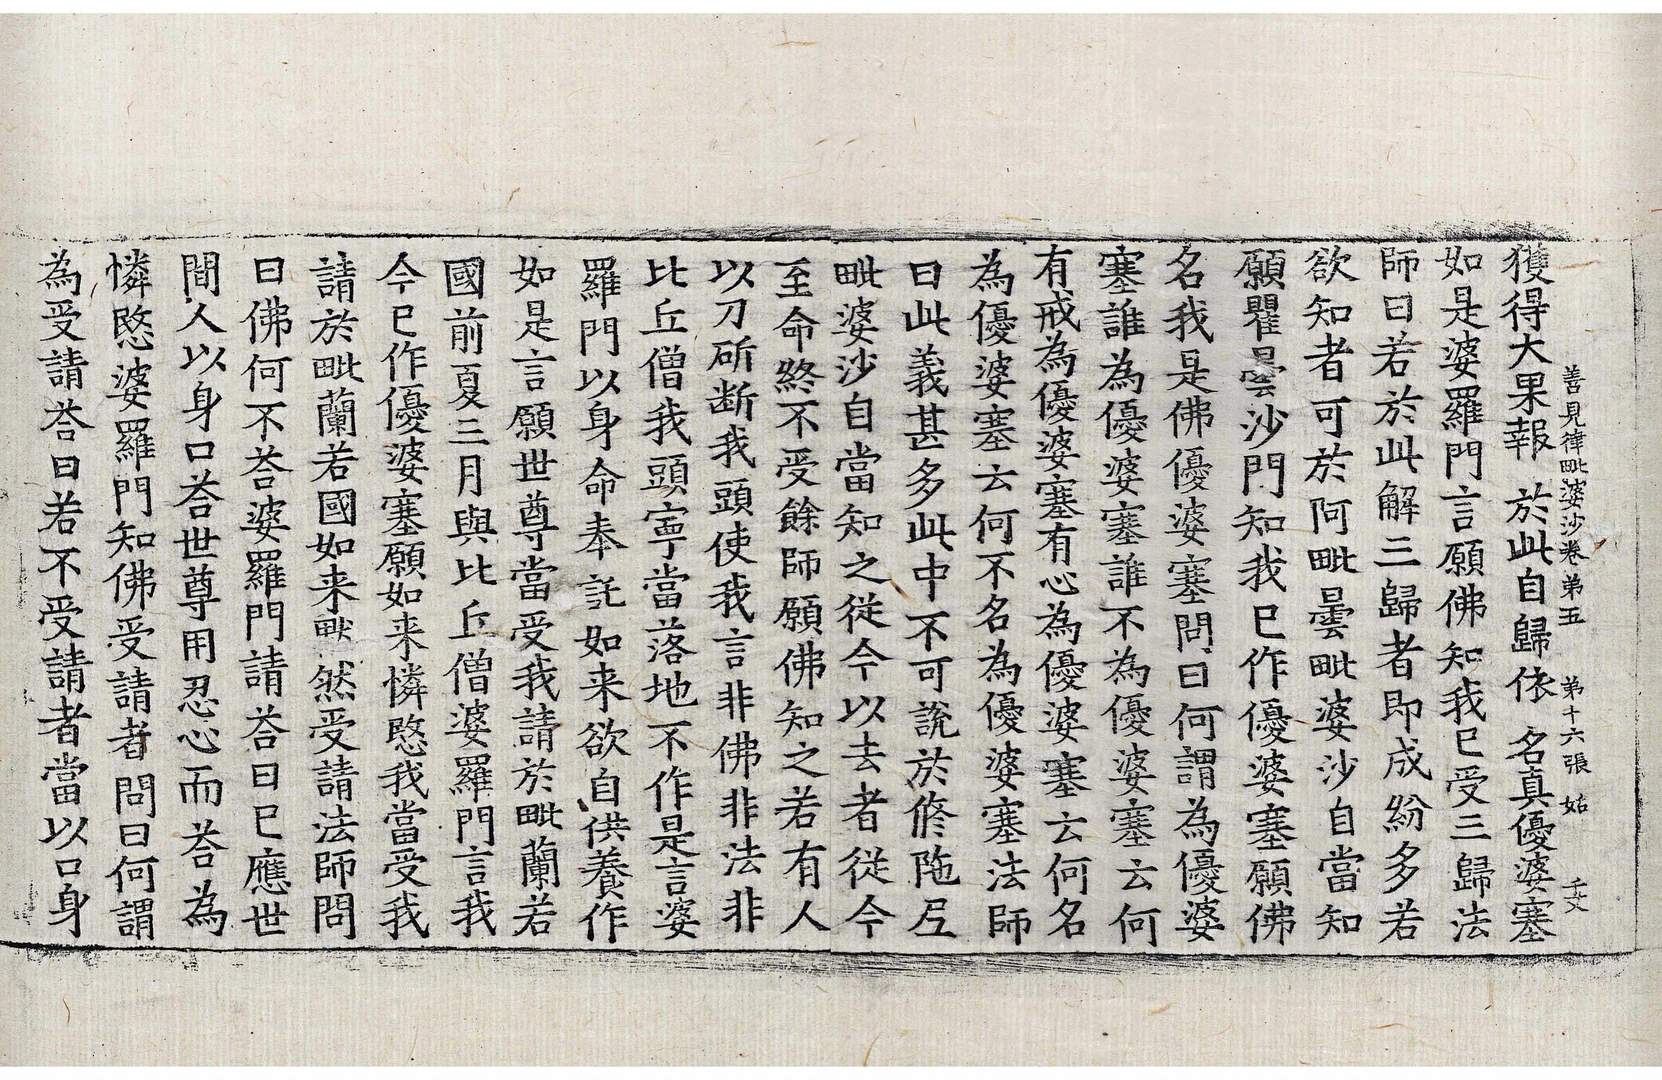 善見律毗婆沙卷第五　第十六張　姑
獲得大果報於此自歸依名真優婆塞
如是婆羅門言願佛知我已受三歸法
師曰若於此解三歸者即成紛多若
欲知者可於阿毗曇毗婆沙自當知
願瞿曇沙門知我已作優婆塞願佛
名我是佛優婆塞問曰何謂為優婆
塞誰為優婆塞誰不為優婆塞云何
有戒為優婆塞有心為優婆塞云何名
為優婆塞云何不名為優婆塞法師
曰此義甚多此中不可說於脩陁𡰱
毗婆沙自當知之從今以去者從今
至命終不受餘師願佛知之若有人
以刀斫断我頭使我言非佛非法非
比丘僧我頭寧當落地不作是言婆
羅門以身命奉託如来欲自供養作
如是言願世尊當受我請於毗蘭若
國前夏三月與比丘僧婆羅門言我
今已作優婆塞願如来憐愍我當受我
請於毗蘭若國如来㗖然受請法師問
曰佛何不荅婆羅門請荅曰已應世
間人以身口荅世尊用忍心而荅為
憐愍婆羅門知佛受請者問曰何謂
為受請荅曰若不受請者當以口身